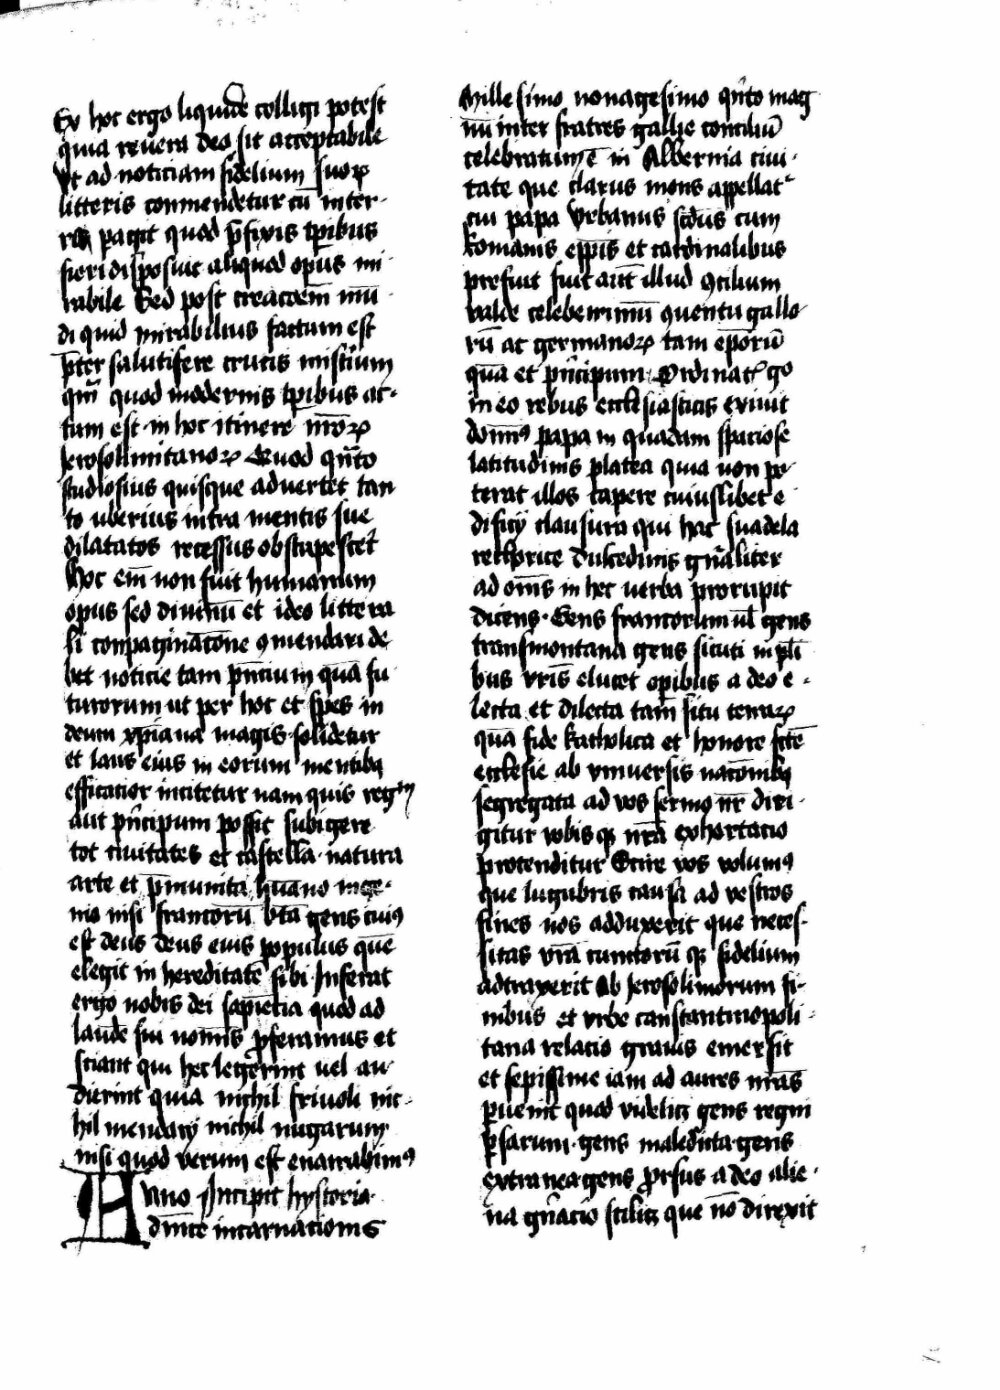 Ex hoc ergo liquide colligi potest
quia revera deo sit acceptabile
ut ad noticiam fidelium suoꝝ
litteris conmendetur cū inter
ra pagit quod p̄fixis tp̄ibus
fieri disposuit aliquod opus mi
rabile Sed post creacōem mū
di quid mirabilius factum est
p̄ter salutifere crucis mist̄ium
qm̄ quod modernis tp̄ibus ac
tum est in hoc itinere nr̄oꝝ
Jerosolimitanoꝝ Quod qn̄to
studiosius quisque advertet tan
to uberius intra mentis sue
dilatatos recessus obstupescet
Hoc em̄ non fuit humanum
opus sed divinū et ideo littera
li conpaginac̄one ꝯmendari de
bet noticie tam pn̄cium quā fu
turorum ut per hoc et spes in
deum xp̄iana magis solidetur
et laus eius in eorum mentibꝫ
efficacior incitetur nam quis regum
aut pn̄cipum possit subigere
tot civitates et castella natura
arte et p̄munita hūano inge
nio nisi francorū bt̄a gens cuiꝰ
est deus deus eius populus quē
elegit in hereditatē sibi Inferat
ergo nobis dei sapiēcia quod ad
laudē sui nomīs ꝓferamus et
sciant qui hec legerint vel au
dierint quia nichil frivoli nic
hil mendacij nichil nugarum
nisi quod verum est enarrabimꝰ
Anno Incipit hystoria
dn̄ice incarnationis
Millesimo nonagesimo qn̄to mag
nū inter fratres gallie conciliū
celebratum ē in Alvernia civi
tate que clarus mons appellatʳ
cui papa Urbanus scd̄us cum
Romanis ep̄pis et cardinalibus
prefuit fuit aut̄ illud ꝯcilium
valde celeberrimū ꝯventu gallo
rū ac germanoꝝ tam ep̄orū
quā et pn̄cipum Ordinat̄ ꝟgo
in eo rebus ecclesiasticis exivit
domn̄ꝰ papa in quadam spaciose
latitudinis platea quia non po
terat illos capere cuiuslibet e
dificij clausura qui hac suadela
rethorice dulcedinis gn̄aliter
ad om̄s in hec verba prorupit
dicens Gens francorum ul̄ gens
transmontana gens sicuti in pl̄i
bus vr̄is elucet opibus a deo e
lecta et dilecta tam situ terraꝝ
quā fide katholica et honore sc̄tē
ecclesie ab universis nac̄onibꝫ
segregata ad vos sermo nr̄ diri
gitur vobisqꝫ nr̄a exhortacio
protenditur Scire vos volumꝰ
que lugubris causa ad vestros
fines nos adduxerit que neces
sitas vr̄a cunctorū qꝫ fidelium
adtraxerit Ab Jerosolimorum fi
nibus et urbe constantinopoli
tana relacio gravis emersit
et sepissime iam ad aures nr̄as
ꝑvenit quod videlicꝫ gens regni
ꝑsarum gens maledicta gens
extranea gens prorsus a deo alie
na gn̄acio scilicꝫ que nō direxit